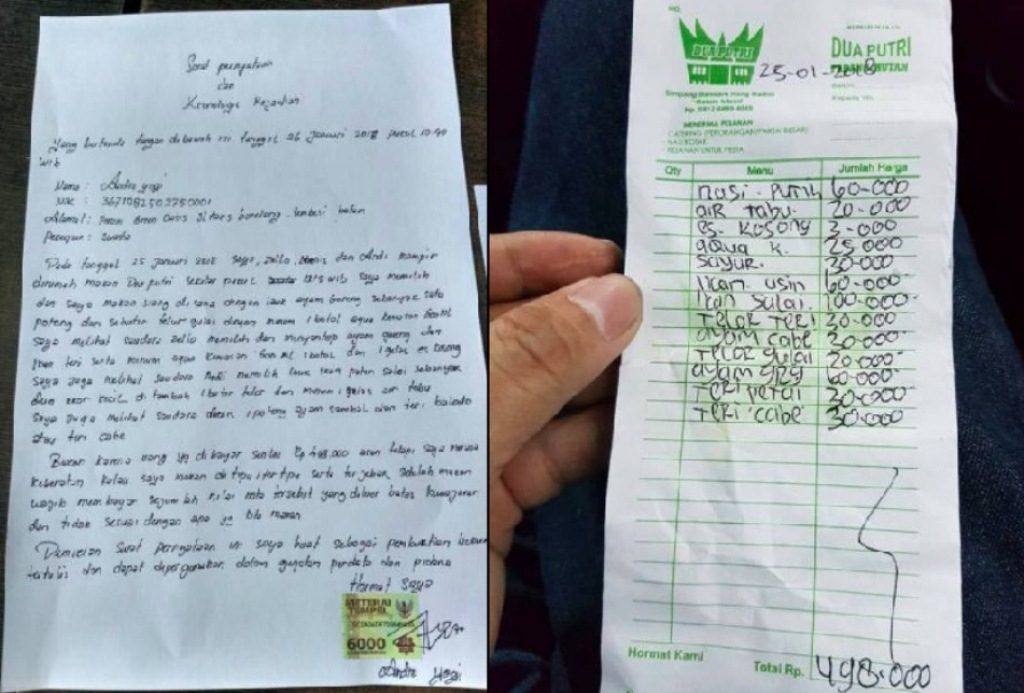 Surat pernyataan
dan
Kronologis Kejadian
Yang bertanda tangan dibawah ini tanggal 26 Januari 2018 pukul 10.40
wib
Nama : Andra yogi
NIK : 3671082502750001
Alamat : Perum Green Batam
Pekerjaan : Swasta
Pada tanggal 25 Januari 2018 Saya, Zello, dan Andi mampir
dirumah makan Dua putri sekitar pukul wib saya memilih
dan saya makan siang di sana dengan lauk ayam Goreng sebanyak satu
potong dan sebutir telur gulai dengan minum 1 botol aqua
Saya melihat saudara Zello memilih dan menyantap ayam goreng dan
ikan teri serta minum aqua kemasan 600 ml 1 botol dan 1 gelas es kosong
Saya juga melihat saudara Andi memilih lauk ikan salai sebanyak
dua ekor kecil di tambah 1 butir telor dan minum 1 gelas air tabu
Saya juga melihat saudara 1 potong ayam sambal dan teri balado
atau teri cabe
Bukan karena uang yg di bayar senilai Rp 498.000 akan tetapi saya merasa
keberatan kalau saya makan di tipu serta terjebak setelah makan
wajib membayar sejumlah nilai tersebut yang diluar batas kewajaran
dan tidak sesuai dengan apa yg kita makan
Demikian Surat pernyataan ini saya buat sebagai pembuktian
tertulis dan dapat dipergunakan dalam gugatan perdata dan pidana
Hormat Saya
METERAI
TEMPEL
6000
Andra Yogi
NO.
DUA PUTRI
25-01-2018
DUA PUTRI
Kepada Yth.
MENERIMA PESANAN
CATERING
NASI KOTAK
PESANAN UNTUK PESTA
Qty Menu Jumlah Harga
nasi - Putih 60-000
aiR Tabu. 20-000
es. Kosong 3-000
aqua K. 25 000
Sayur. 30-000
Ikan. usin 60-000
Ikan Salai. 100-000
TeLoR TeRi 30-000
ayam cabe 30-000
TeLoR gulai 20.000
ayam grg 60-000
TeRi petai 30-000
TeRi cabe 30.000
Hormat Kami Total Rp. 498.000